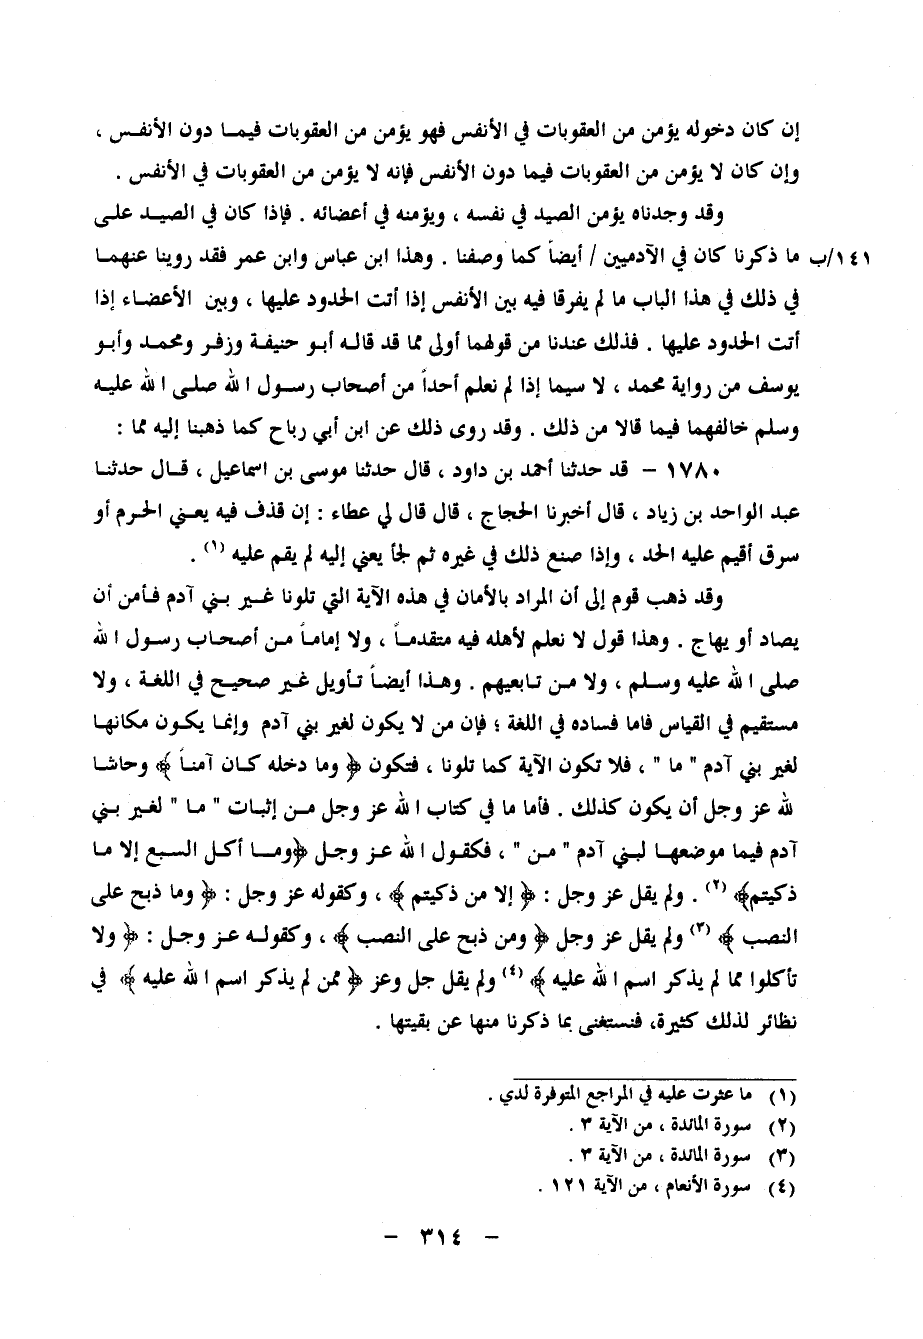 إن كان دخوله يؤمن من العقوبات في الأنفس فهو يؤمن من العقوبات فيما دون الأنفس ،
وإن كان لا يؤمن من العقوبات فيما دون الأنفس فإنه لا يؤمن من العقوبات في الأنفس .
وقد وجدناه يؤمن الصيد في نفسه ، ويؤمنه في أعضائه . فإذا كان في الصيد على
١٤١/ب ما ذكرنا كان في الآدميين / أيضاً كما وصفنا . وهذا ابن عباس وابن عمر فقد روينا عنهما
في ذلك في هذا الباب ما لم يفرقا فيه بين الأنفس إذا أتت الحدود عليها ، وبين الأعضاء إذا
أتت الحدود عليها . فذلك عندنا من قولهما أولى مما قد قاله أبو حنيفة وزفر ومحمد وأبو
يوسف من رواية محمد ، لا سيما إذا لم نعلم أحداً من أصحاب رسول الله صلى الله عليه
وسلم خالفهما فيما قالا من ذلك . وقد روى ذلك عن ابن أبي رباح كما ذهبنا إليه مما :
١٧٨٠ - قد حدثنا أحمد بن داود ، قال حدثنا موسى بن اسماعيل ، قال حدثنا
عبد الواحد بن زياد ، قال أخبرنا الحجاج ، قال قال لي عطاء : إن قذف فيه يعني الحرم أو
سرق أقيم عليه الحد ، وإذا صنع ذلك في غيره ثم لجأ يعني إليه لم يقم عليه (١) .
وقد ذهب قوم إلى أن المراد بالأمان في هذه الآية التي تلونا غير بني آدم فأمن أن
يصاد أو يهاج . وهذا قول لا نعلم لأهله فيه متقدماً ، ولا إماماً من أصحاب رسول الله
صلى الله عليه وسلم ، ولا من تابعيهم . وهذا أيضاً تأويل غير صحيح في اللغة ، ولا
مستقيم في القياس فاما فساده في اللغة ؛ فإن من لا يكون لغير بني آدم وإنما يكون مكانها
لغير بني آدم " ما " ، فلا تكون الآية كما تلونا ، فتكون ﴿ وما دخله كان آمناً ﴾ وحاشا
لله عز وجل أن يكون كذلك . فأما ما في كتاب الله عز وجل من إثبات " ما " لغير بني
آدم فيما موضعها لبني آدم " من " ، فكقول الله عز وجل ﴿وما أكل السبع إلا ما
ذكيتم﴾ (٢) . ولم يقل عز وجل : ﴿ إلا من ذكيتم ﴾ ، وكقوله عز وجل : ﴿ وما ذبح على
النصب ﴾ (٣) ولم يقل عز وجل ﴿ ومن ذبح على النصب ﴾ ، وكقوله عز وجل : ﴿ ولا
تأكلوا مما لم يذكر اسم الله عليه ﴾ (٤) ولم يقل جل وعز ﴿ ممن لم يذكر اسم الله عليه ﴾ في
نظائر لذلك كثيرة، فنستغنى بما ذكرنا منها عن بقيتها .
(١) ما عثرت عليه في المراجع المتوفرة لدي .
(٢) سورة المائدة ، من الآية ٣ .
(٣) سورة المائدة ، من الآية ٣ .
(٤) سورة الأنعام ، من الآية ١٢١ .
- ٣١٤ -